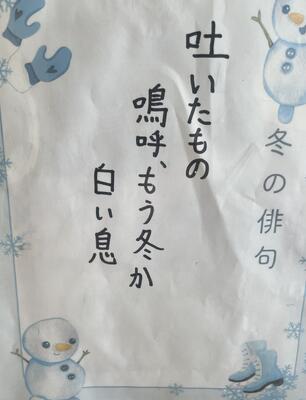 冬の俳句
吐いたもの
嗚呼、もう冬か
白い息